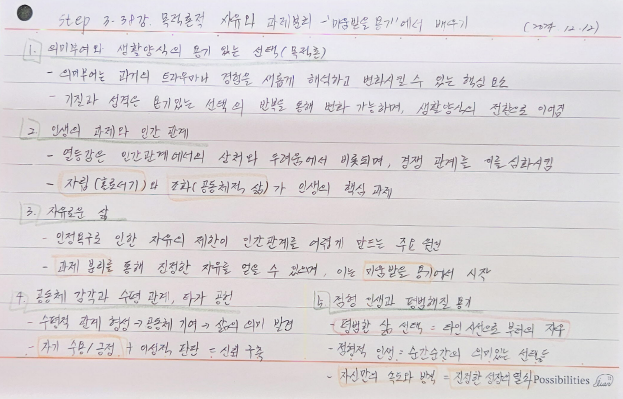 Step 3-38강. 목적론적 자유와 과제분리 - '미움받을 용기'에서 배우기 (2024. 12. 12)
1. 의미부여와 생활양식의 용기 있는 선택 (목적론)
- 의미부여는 과거의 트라우마나 경험을 새롭게 해석하고 변화시킬 수 있는 핵심 요소
- 기질과 성격은 용기있는 선택의 반복을 통해 변화 가능하며, 생활양식의 전환으로 이어짐
2. 인생의 과제와 인간 관계
- 열등감은 인간관계에서의 상처와 두려움에서 비롯되며, 경쟁 관계를 이를 심화시킴
- 자립(홀로서기)와 조화(공동체적 삶)가 인생의 핵심 과제
3. 자유로운 삶
- 인정욕구로 인한 자유의 제한이 인간관계를 어렵게 만드는 주요 원인
- 과제 분리를 통해 진정한 자유를 얻을 수 있으며, 이는 미움받을 용기에서 시작
4. 공동체 감각과 수평 관계, 타자 공헌
- 수평적 관계 형성 → 공동체 기여 → 삶의 의미 발견
- 자기 수용/긍정 + 이성적 판단 = 신뢰 구축
5. 점형 인생과 평범해질 용기
- 평범한 삶 선택 = 타인 시선으로 부터의 자유
- 점형적 인생 = 순간순간의 의미있는 선택들
- 자신만의 속도와 방식 = 진정한 성장의 열쇠
Possibilities